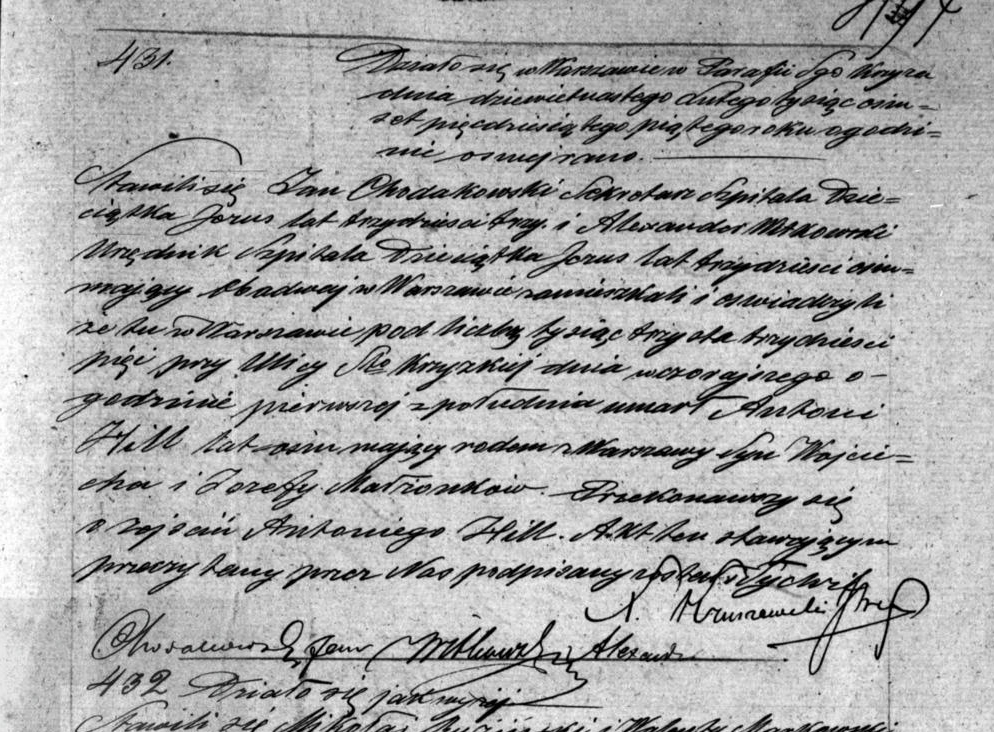 431.
Działo się w Warszawie w Parafii Sgo Krzyża
dnia dziewietnastego Lutego tysiąc ośm=
set pięcdziesiątego piątego roku o godzi=
nie osmej rano.
Stawili się Jan Chodakowski Sekretarz Szpitala Dzie=
ciątka Jezus lat trzydzieści trzy. i Alexander Witkowski
Urzędnik Szpitala Dzieciątka Jezus lat trzydzieści ośm=
mający Obadwaj w Warszawie zamieszkali i oswiadczyli
że tu w Warszawie pod liczbą tysiąc trzysta trzydzieści
pięć przy Ulicy Sto Krzyzkiej dnia wczorajszego o=
godzinie pierwszej z południa umarł Antoni
Hill lat ośm mający rodem z Warszawy Syn Wojcie=
cha i Jozefy Małżonków. Przekonawszy się
o zejściu Antoniego Hill. Akt ten stawającym
przeczytany przez Nas podpisany został
Chodakowski Jan Witkowski Alexander
432 Działo się jak wyżej
Stawili się Mikołaj i Walenty